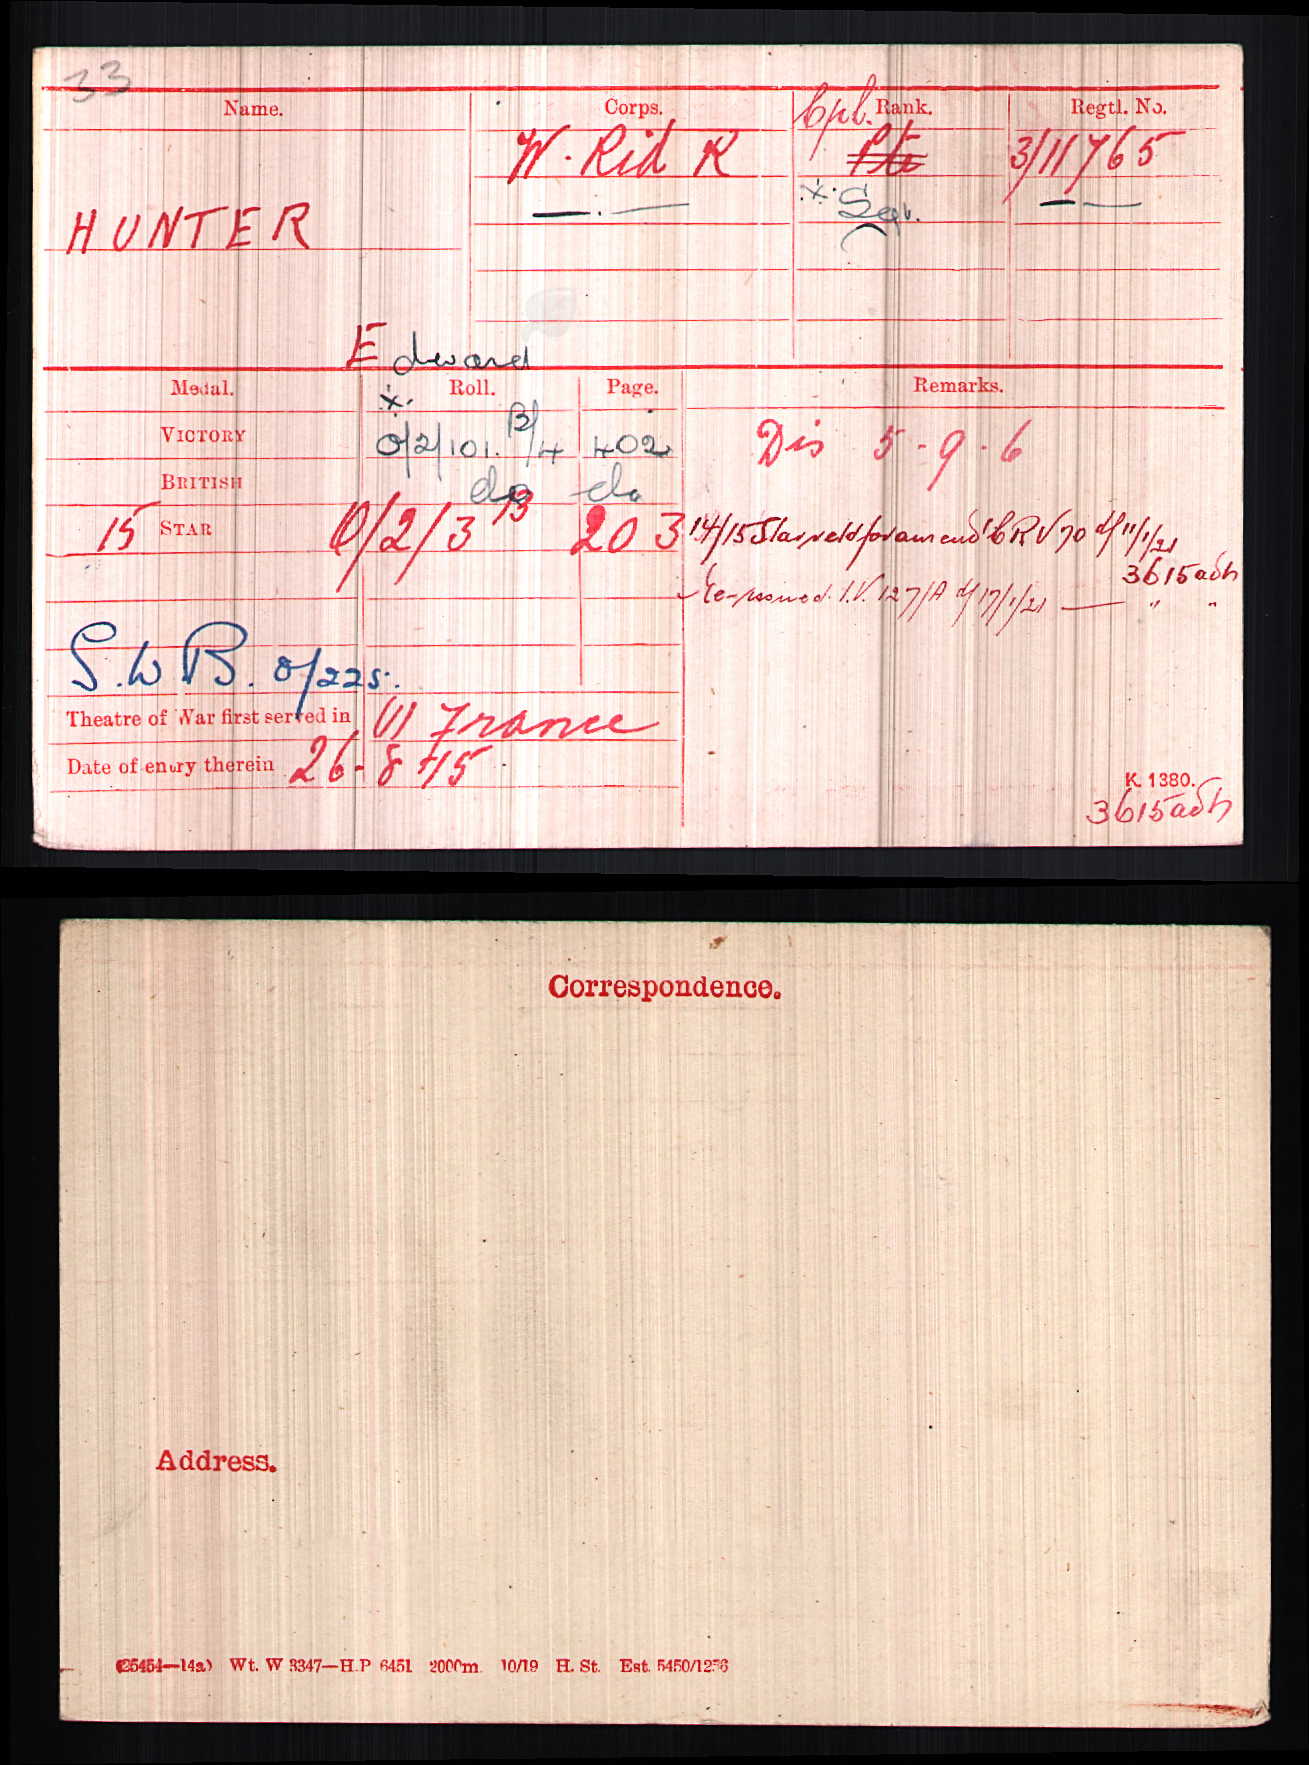 33
Name. Corps. Rank. Regtl. No.
Cpl.
W. Rid R Pte 3/11765
x. Sgt.
HUNTER
Edward
Medal. Roll. Page. Remarks.
x.
VICTORY O/2/101. B/4 402 Dis 5-9-6
BRITISH do do
15 STAR O/2/3 B 203 14/15 Star retd for amend CRV 70 d/ 11/1/21
3615 adh
Re-issued I.V. 127/A d/ 17/1/21 — " "
S.W B. O/225.
Theatre of War first served in (1) France
Date of entry therein 26-8-15
K. 1380.
3615 adh
Correspondence.
Address.
(25454—14a) Wt. W 3347—H.P 6451 2000m. 10/19 H. St. Est. 5450/1256